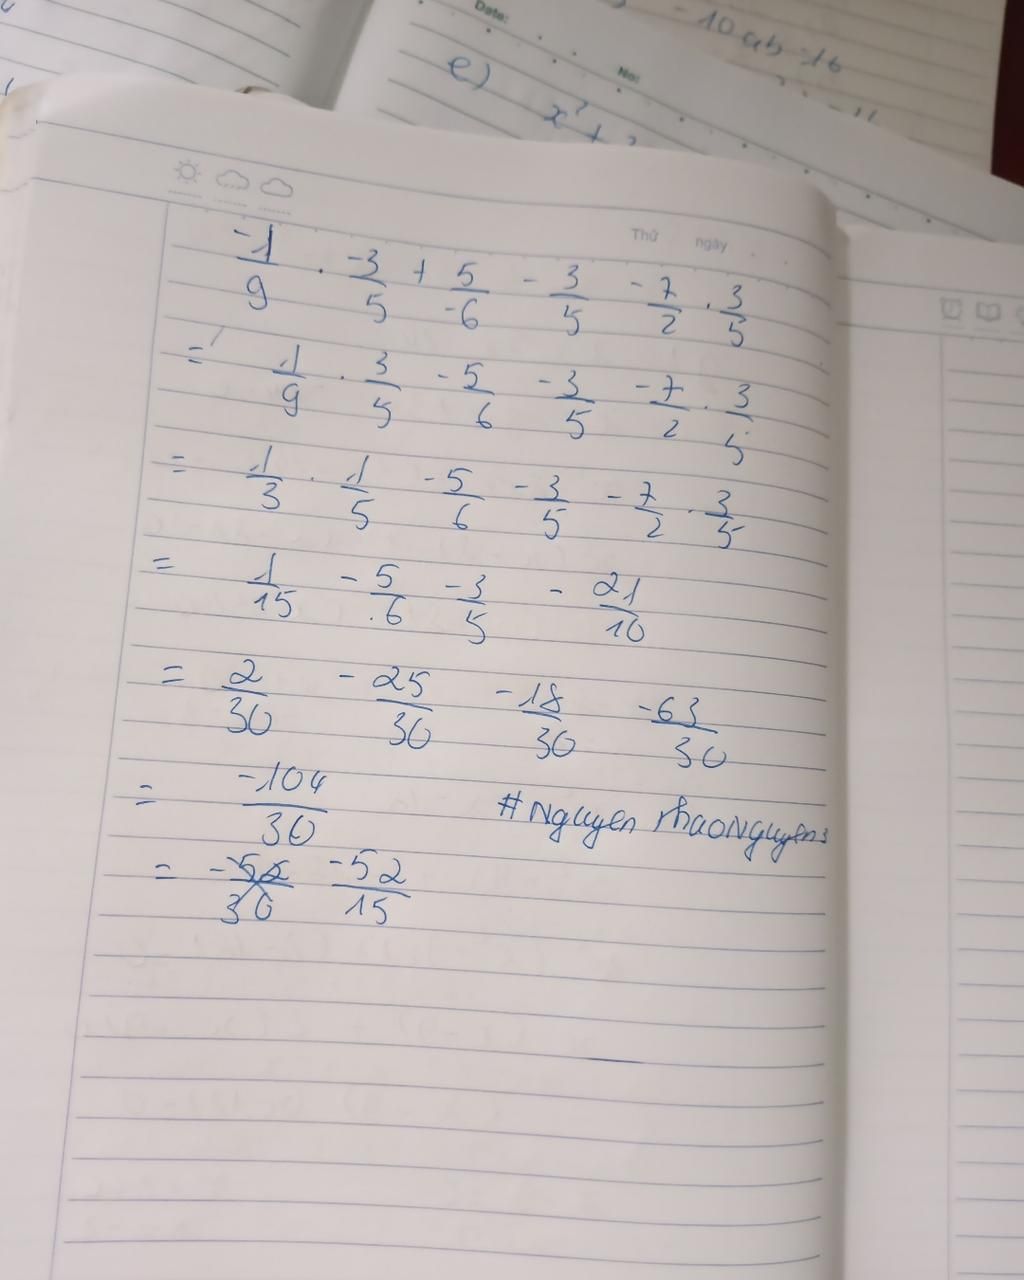 - 10ab = 16
Date:
No:
e)
x² +
Thứ ngày
-1/9 . -3/5 + 5/-6 - 3/5 - 7/2 . 3/5
= 1/9 . 3/5 - 5/6 - 3/5 - 7/2 . 3/5
= 1/3 . 1/5 - 5/6 - 3/5 - 7/2 . 3/5
= 1/15 - 5/6 - 3/5 - 21/10
= 2/30 - 25/30 - 18/30 - 63/30
= -104/30
#Nguyen ThaoNguyen
= -52/15